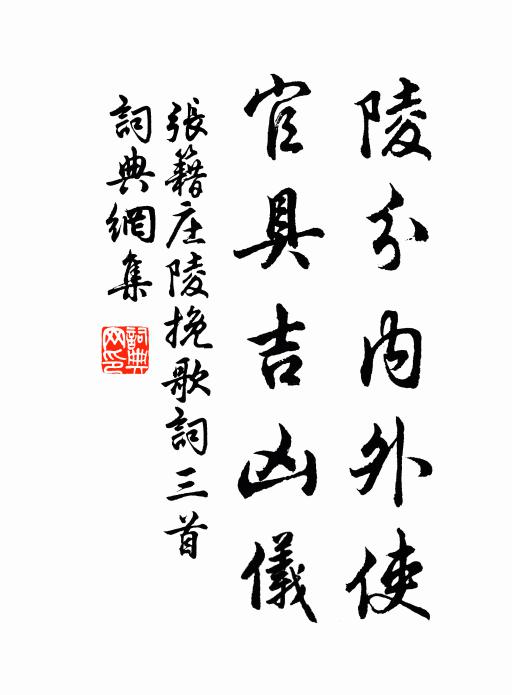 陵分內外使
官具吉凶儀
張籍庄陵挽歌詞三首
詞典網集
詞典网印